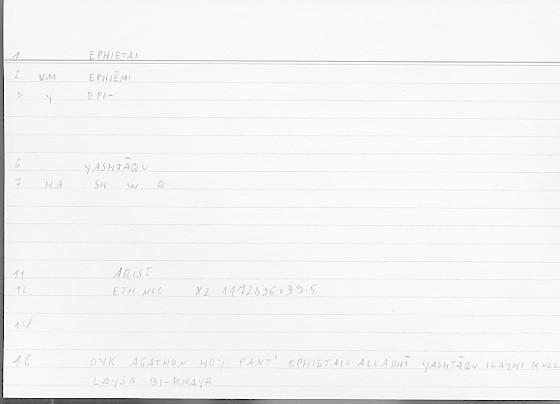 1 EPHIETAI
2 VM EPHIĒMI
3 Y EPI-
6 YASHTĀQU
7 HA SH W Q
11 ARIST
12 ETH NIC X2 1172b36:39.5
15/
16 OYK AGATHON HOY PANT' EPHIETAI: ALLADHĪ YASHTĀQU ILAYHI KULL
LAYSA BI-KHAYR